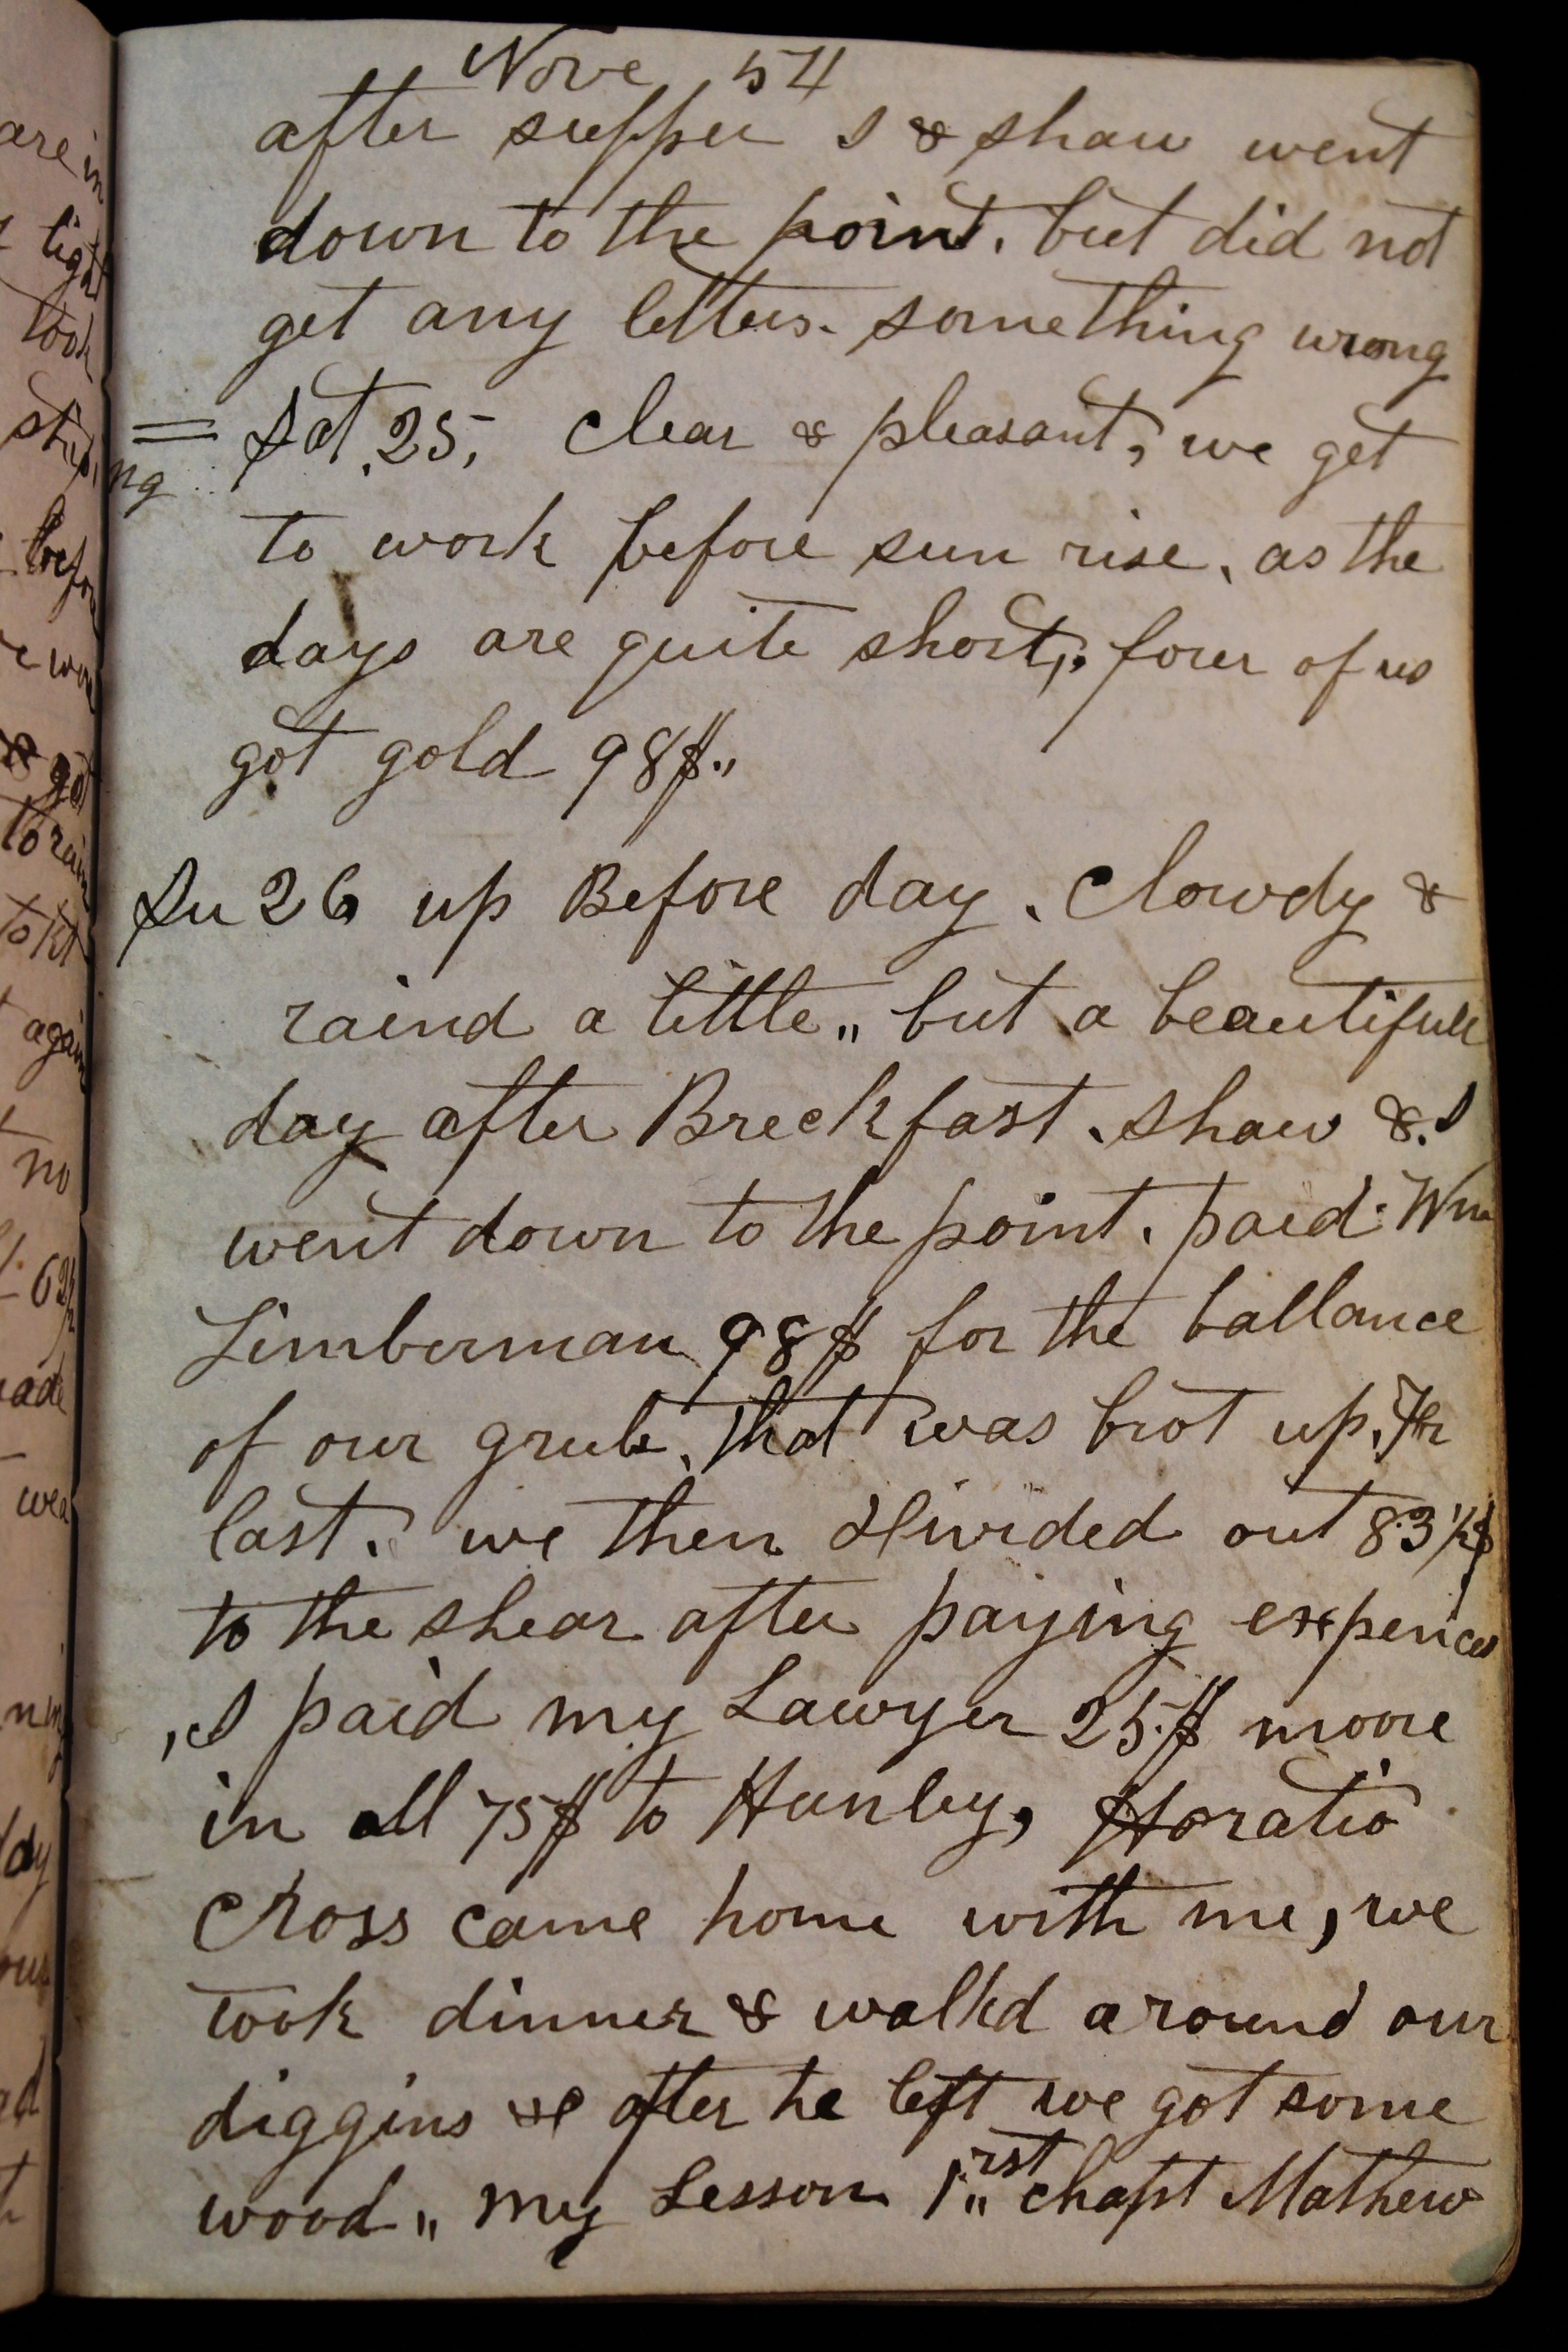 Nove 54
after supper I & shaw went
down to the point. but did not
get any letters. something wrong
Sat. 25, Clear & pleasant, we get
to work before sun rise, as the
days are quite short, four of us
got gold 98$.,
Su 26 up Before day. Clowdy &
raind a little,, but a beautifull
day after Breckfast. shaw & I
went down to the point. paid Wm
Limberman 98$ for the ballance
of our grub. that was brot up.
last. we then divided out 83 1/2$
to the shear after paying expences
,I paid my Lawyer 25.$ moore
in all 75$ to Hanley, Horatio
Cross came home with me, we
took dinner & walkd around our
diggins & after he left we got some
wood,, my Lesson 1rst,, chapt Mathew
are in
tight
took
ng
before
& got
to rain
again
no